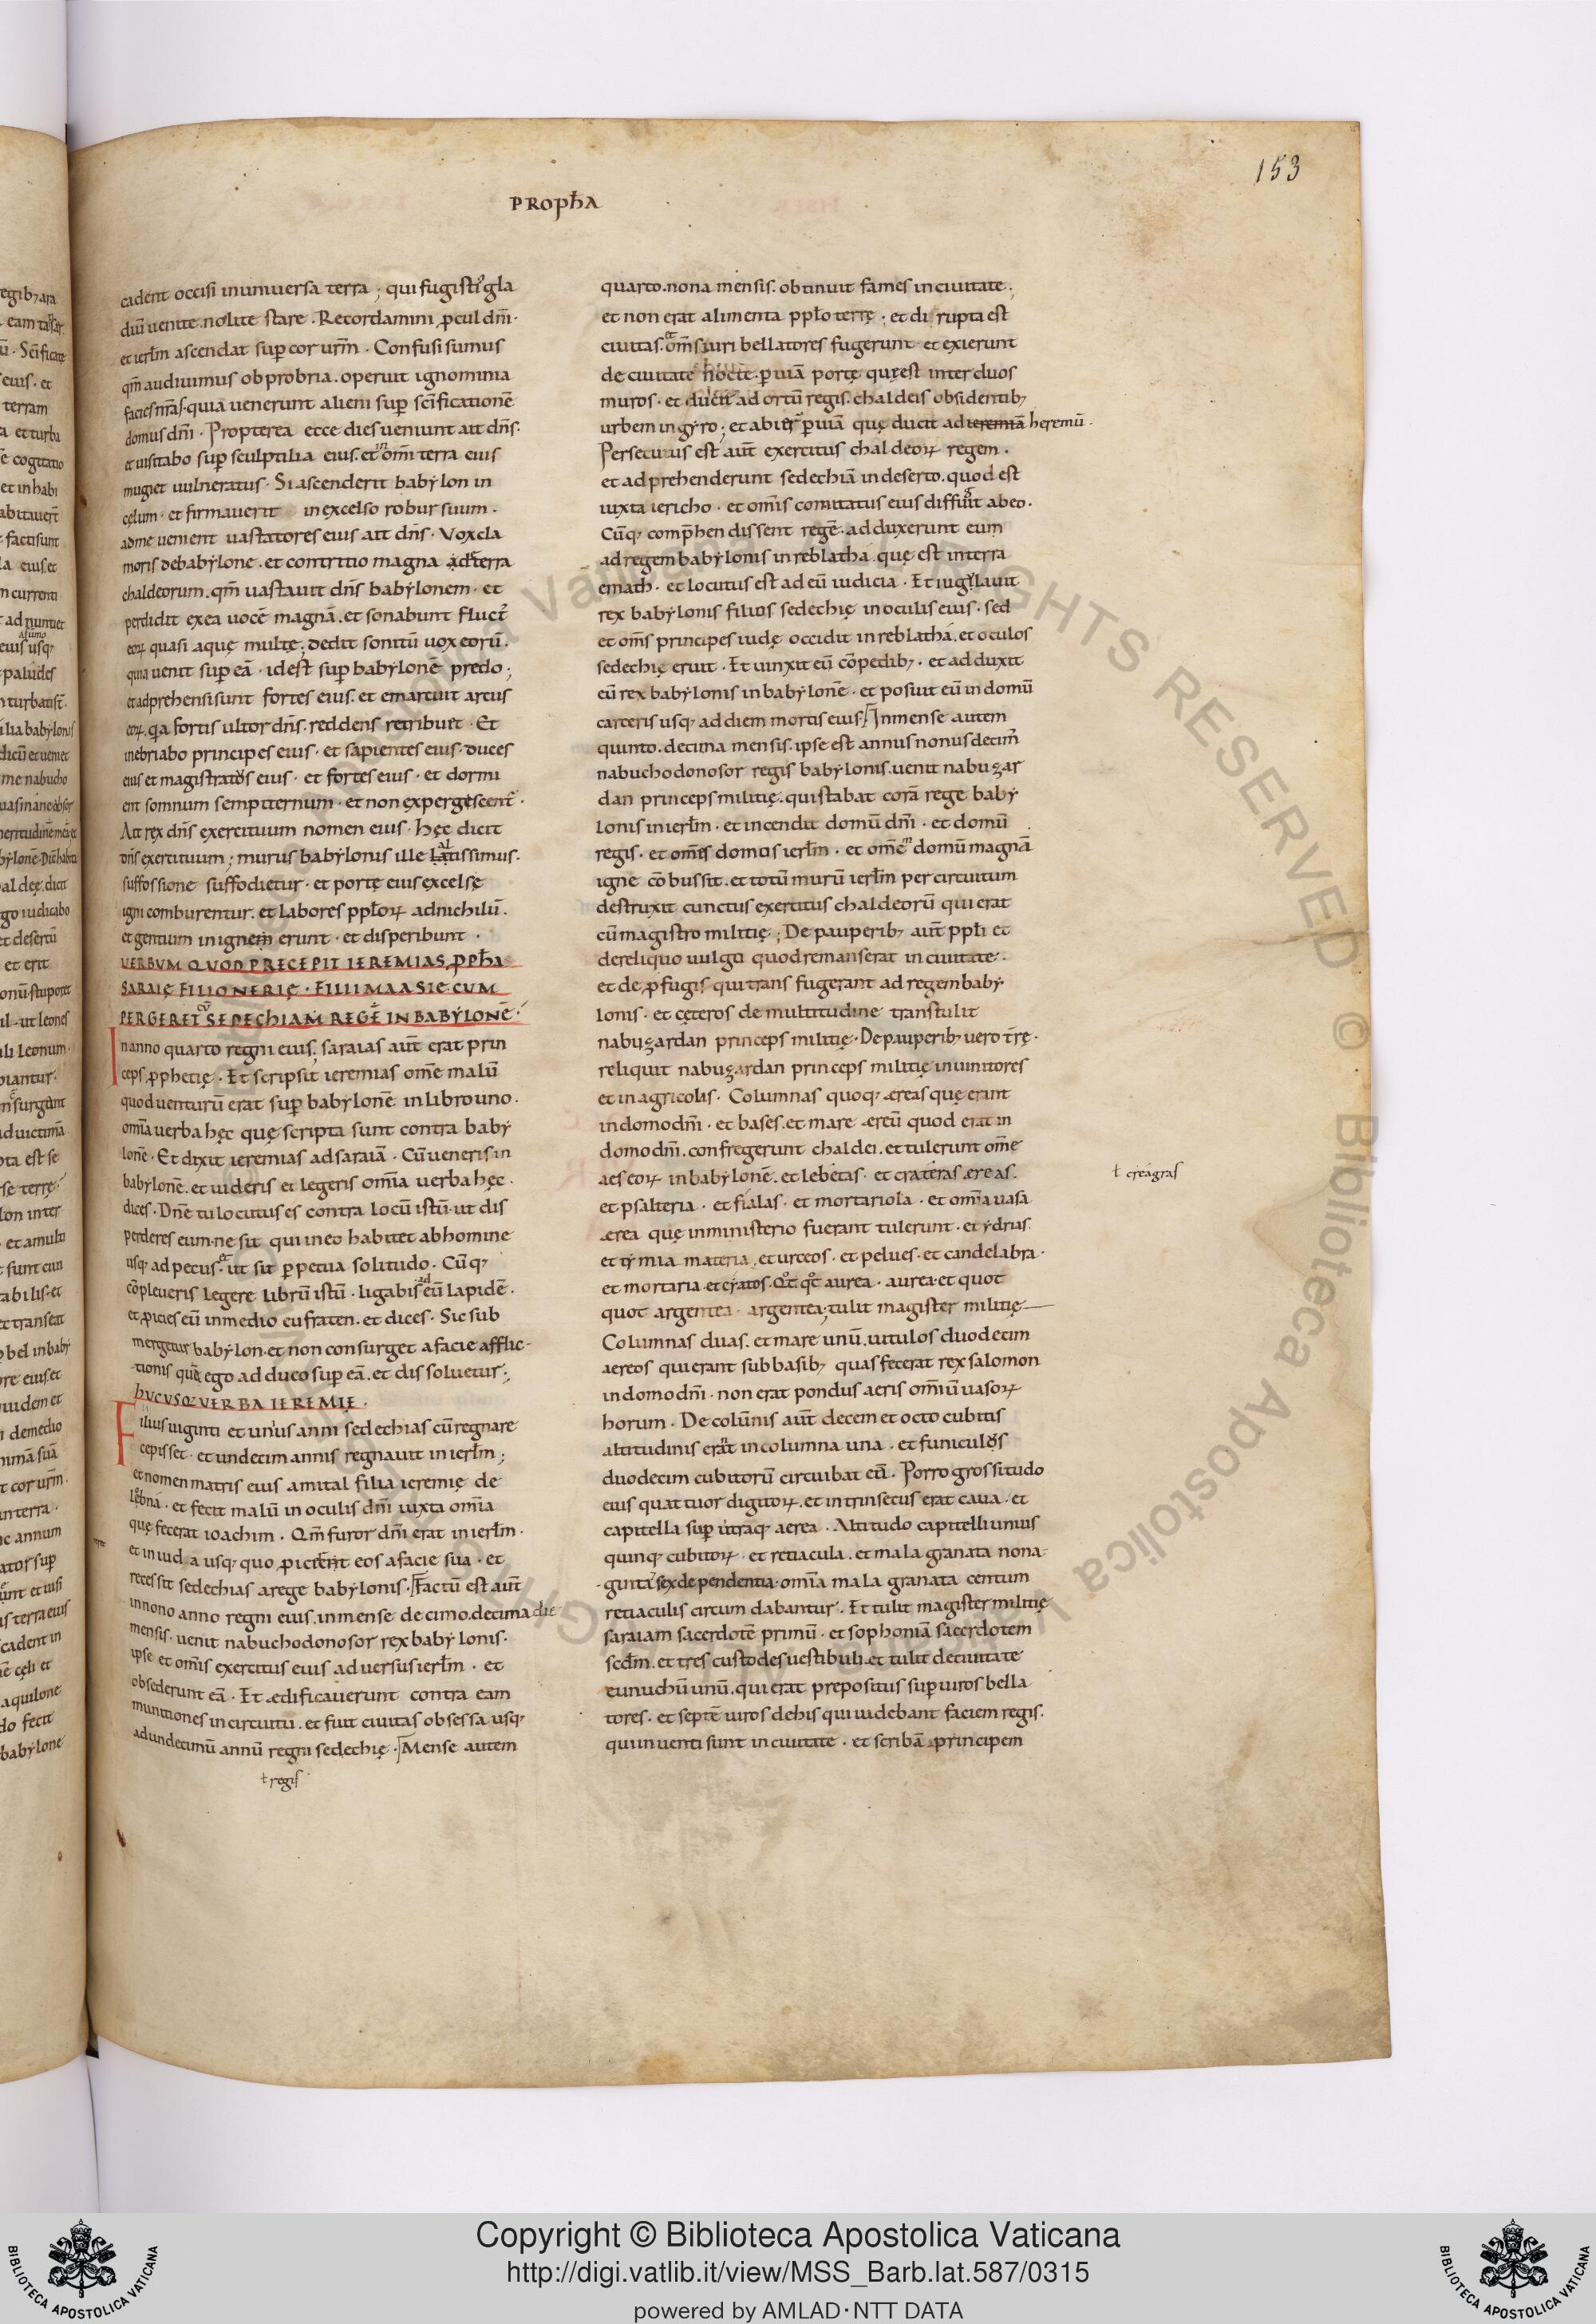 153
PROPħA
cadent occisi inuniuersa terra ; qui fugisti gla
diū uenite . nolite stare . Recordamini ꝓcul dn̄i .
et ierłm ascendat sup̄ cor ur̄m . Confusi sumus
qm̄ audiuimus obprobria . operuit ignominia
facies nr̄as . quia uenerunt alieni sup̄ sc̄ificationē
domus dn̄i . Propterea ecce dies ueniunt ait dn̄s .
et uisitabo sup̄ sculptilia eius . et in om̄i terra eius
mugiet uulneratus . Si ascenderit babylon in
cęlum . et firmauerit in excelso robur suum .
a dme uenient uastatores eius ait dn̄s . Vox cla
moris de babylone . et contritio magna ad terra
chaldeorum . qm̄ uastauit dn̄s babylonem . et
perdidit ex ea uocē magnā . et sonabunt fluct᷒
eoꝝ quasi aquę multę ; dedit sonitū uox eorū .
quia uenit sup̄ eā . id est sup̄ babylonē predo ;
et adprehensi sunt fortes eius . et emarcuit arcus
eoꝝ . qa fortis ultor dn̄s . reddens retribuet . Et
inebriabo principes eius . et sapientes eius . duces
eius et magistratos eius . et fortes eius . et dormi
ent somnum sempiternum . et non expergescent᷒ .
Ait rex dn̄s exercituum nomen eius . Hęc dicit
dn̄s exercituum ; murus babylonis ille latissimus .
suffossione suffodietur . et portę eius excelsę
igni comburentur . et labores ppłoꝝ ad nichilū .
et gentium in ignem erunt . et disperibunt .
VERBVM QUOD PRECEPIT IEREMIAS ꝓPħA
SARAIĘ FILIO NERIĘ . FILII MAASIE CUM
PERGERET cū SEDECHIAM REGĒ IN BABYLONĒ .
In anno quarto regni eius . saraias aūt erat prin
ceps ꝓphetię . Et scripsit ieremias om̄e malū
quod uenturū erat sup̄ babylonē in libro uno .
om̄ia uerba hęc quę scripta sunt contra baby
lonē . Et dixit ieremias ad saraiā . Cū ueneris in
babylonē . et uideris et legeris om̄ia uerba hęc .
dices . Dn̄e tu locutus es contra locū istū . ut dis
perderes eum . ne sit qui in eo habitet ab homine
usq; ad pecus . et ut sit ꝑpetua solitudo . Cūq;
cōpleueris legere librū istū . ligabis ad eū lapidē .
et ꝓicies eū in medio eufraten . et dices . Sic sub
mergetur babylon . et non consurget a facie afflic-
tionis quā ego adduco sup̄ eā . et dissoluetur ;
hVCVSQ; VERBA IEREMIĘ .
Filius uiginti et unius anni sedechias cū regnare
cepisset . et undecim annis regnauit in ierłm ;
et nomen matris eius amital filia ieremię de
lobna . et fecit malū in oculis dn̄i iuxta om̄ia
quę fecerat ioachim . Qm̄ furor dn̄i erat in ierłm .
et in iuda usq; quo ꝓiceret eos a facie sua . et
recessit sedechias a rege babylonis . Factū est aūt
in nono anno regni eius . in mense decimo . decima die
mensis . uenit nabuchodonosor rex babylonis .
ipse et om̄is exercitus eius aduersus ierłm . et
obsederunt eā . Et ædificauerunt contra eam
munitiones in circuitu . et fuit ciuitas obsessa usq;
ad undecimū annū regni sedechię . Mense autem
ł regis
quarto . nona mensis . obtinuit fames in ciuitate ;
et non erat alimenta ppło terrę ; et dirupta est
ciuitas . et om̄s uiri bellatores fugerunt . et exierunt
de ciuitate nocte . ꝑ uiā portę quę est inter duos
muros . et ducit ad ortū regis . chaldeis obsidentib;
urbem in gyro ; et abier̄ ꝑ uiā quę ducit ad ieremiā heremū .
Persecutus est aūt exercitus chaldeoꝝ regem .
et adprehenderunt sedechiā in deserto . quod est
iuxta iericho . et om̄is comitatus eius diffugit ab eo .
Cūq; comp̄hendissent regē . adduxerunt eum
ad regem babylonis in reblatha . quę est in terra
emath . et locutus est ad eū iudicia . Et iugulauit
rex babylonis filios sedechię in oculis eius . sed
et om̄s principes iudę occidit in reblatha . et oculos
sedechię eruit . Et uinxit eū cōpedib; . et adduxit
eū rex babylonis in babylonē . et posuit eū in domū
carceris usq; ad diem mortis eius . In mense autem
quinto . decima mensis . ipse est annus nonus decim᷒
nabuchodonosor regis babylonis . uenit nabuzar
dan princeps militię . qui stabat corā rege baby
lonis in ierłm . et incendit domū dn̄i . et domū
regis . et om̄is domos ierłm . et om̄em domū magnā
igne cōbussit . et totū murū ierłm per circuitum
destruxit cunctus exercitus chaldeorū qui erat
cū magistro militię ; De pauperib; aūt ppłi et
de reliquo uulgo quod remanserat in ciuitate .
et de ꝓfugis qui transfugerant ad regem baby
lonis . et cęteros de multitudine transtulit
nabuzardan princeps militię . De pauperib; uero t̄rę .
reliquit nabuzardan princeps militię in uinitores
et in agricolis . Columnas quoq; æreas quę erant
in domo dn̄i . et bases . et mare æreū quod erat in
domo dn̄i . confregerunt chaldei . et tulerunt om̄e
aes eoꝝ in babylonē . et lebetas . et crateras æreas .
ł creagras
et psalteria . et fialas . et mortariola . et om̄ia uasa
ærea quę in ministerio fuerant tulerunt . et ydrias
et tymiamateria . et urceos . et pelues . et candelabra .
et mortaria . et cyatos . qot qot aurea . aurea . et quot
quot argentea . argentea ; tulit magister militię
Columnas duas . et mare unū . uitulos duodecim
aereos qui erant sub basib; quas fecerat rex salomon
in domo dn̄i . non erat pondus aeris om̄iū uasoꝝ
horum . De colūnis aūt decem et octo cubitis
altitudinis erant in columna una . et funiculus
duodecim cubitorū circuibat eā . Porro grossitudo
eius quattuor digitoꝝ . et intrinsecus erat caua . et
capitella sup̄ utraq; aerea . Altitudo capitelli unius
quinq; cubitoꝝ . et retiacula . et mala granata nona-
ginta sex dependentia . om̄ia mala granata centum
retiaculis circumdabantur . Et tulit magister militię
saraiam sacerdotē primū . et sophoniā sacerdotem
sed̄m . et tres custodes uestibuli . et tulit de ciuitate
eunuchū unū . qui erat prepositus sup̄ uiros bella
tores . et septē uiros de his qui uidebant faciem regis .
qui inuenti sunt in ciuitate . et scribā principem
Copyright © Biblioteca Apostolica Vaticana
http://digi.vatlib.it/view/MSS_Barb.lat.587/0315
powered by AMLAD·NTT DATA